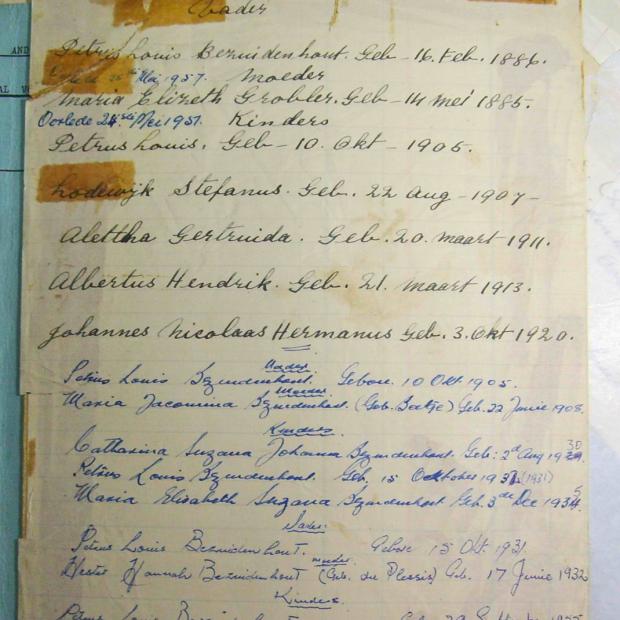 AND
Vader
Petrus Louis Bezuidenhout. Geb - 16. Feb. 1886.
Mei 1957. Moeder
Maria Elizeth Grobler. Geb - 14 mei 1885.
Oorlede 24ste Mei 1951. Kinders
Petrus Louis. Geb - 10. Okt - 1905.
Lodewyk Stefanus. Geb. 22 Aug - 1907 -
Alettha Gertruida. Geb. 20. maart 1911.
Albertus Hendrik. Geb. 21. maart 1913.
Johannes Nicolaas Hermanus Geb. 3. Okt 1920.
Vader.
Petrus Louis Bezuidenhout. Gebore. 10 Okt 1905.
Moeder.
Maria Jacomina Bezuidenhout. (Geb. Boetje) Geb. 22 Junie 1908.
Kinders
Catharina Suzana Johanna Bezuidenhout. Geb: 2de Aug 1930
Petrus Louis Bezuidenhout. Geb. 15 Oktober 1931 (1931)
Maria Elisabeth Suzana Bezuidenhout Geb. 3de Dec 1935
Vader.
Petrus Louis Bezuidenhout. Gebore 15 Okt. 1931
moeder
Hester Hannah Bezuidenhout (Geb. du Plessis) Geb. 17 Junie 1932
Kinders.
Petrus Louis